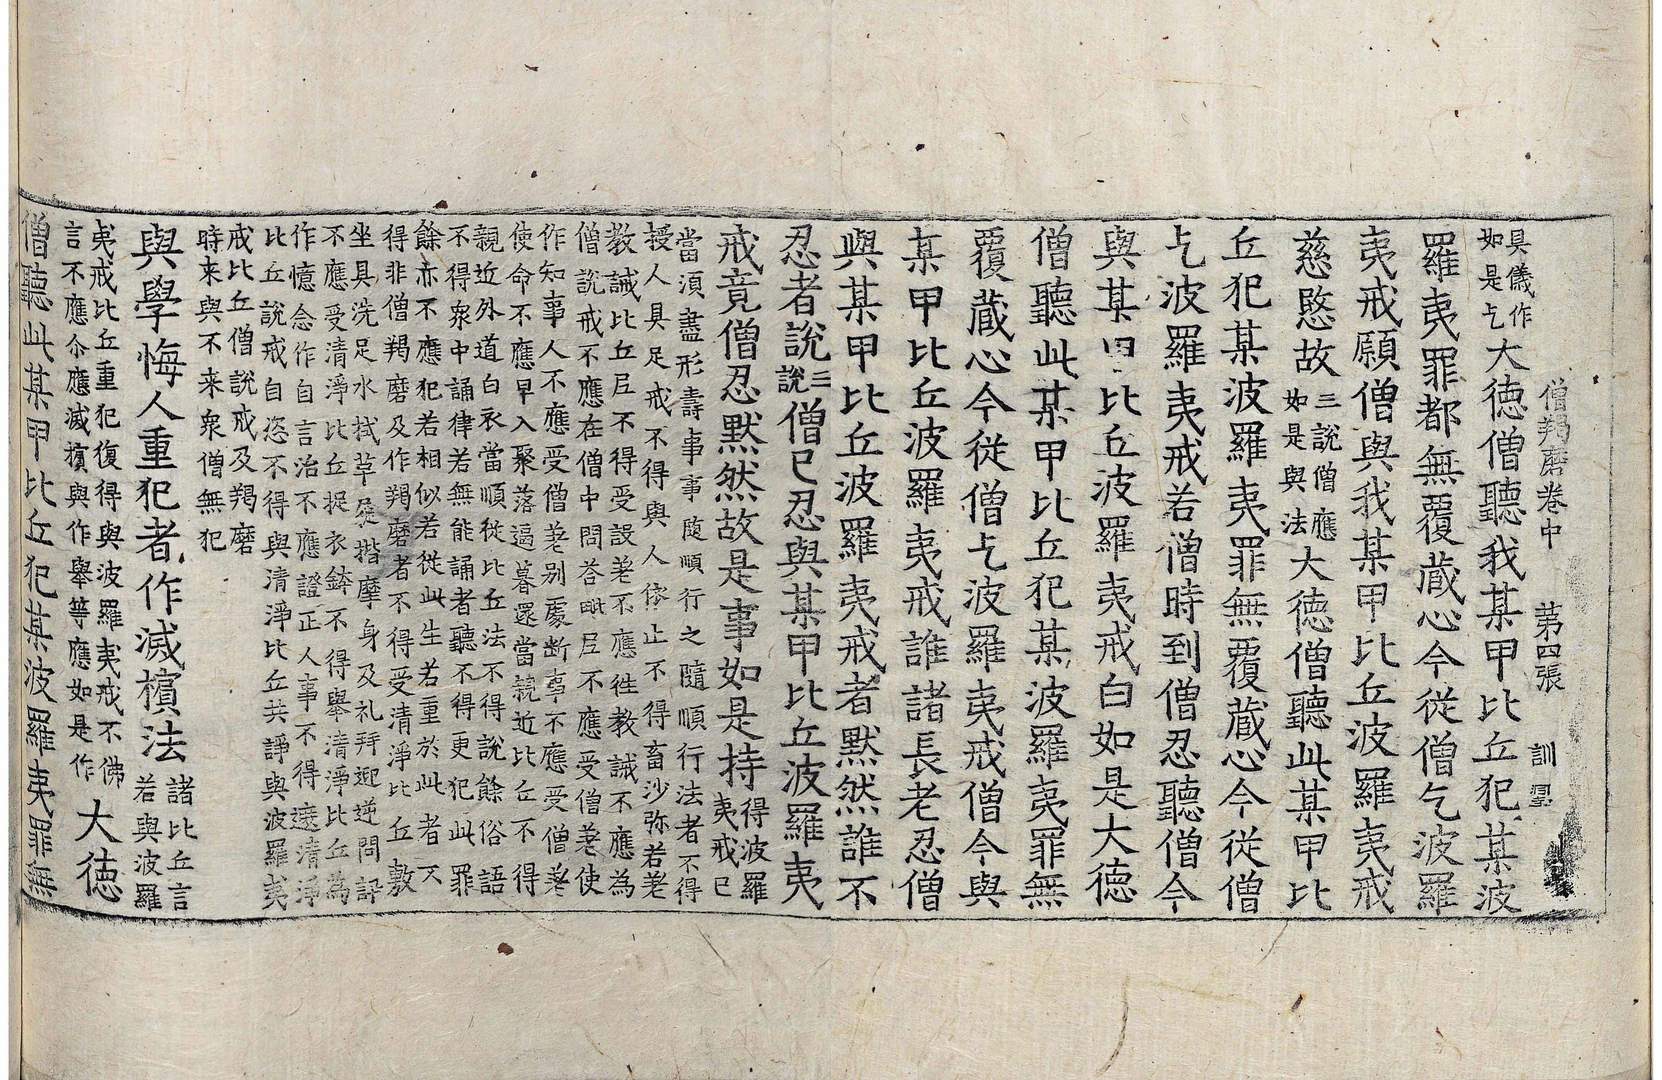 僧羯磨卷中 第四張 訓
具儀作如是乞大德僧聽我某甲比丘犯某波
羅夷罪都無覆藏心今從僧乞波羅
夷戒願僧與我某甲比丘波羅夷戒
慈愍故三說僧應如是與法大德僧聽此某甲比
丘犯某波羅夷罪無覆藏心今從僧
乞波羅夷戒若僧時到僧忍聽僧今
與某甲比丘波羅夷戒白如是大德
僧聽此某甲比丘犯某波羅夷罪無
覆藏心今從僧乞波羅夷戒僧今與
某甲比丘波羅夷戒誰諸長老忍僧
與某甲比丘波羅夷戒者默然誰不
忍者說三說僧已忍與某甲比丘波羅夷
戒竟僧忍默然故是事如是持得波羅夷戒已
當須盡形壽事事隨順行之隨順行法者不得
授人具足戒不得與人依止不得畜沙弥若差
教誡比丘尼不得受設差不應徃教誡不應為
僧說戒不應在僧中問荅毗尼不應受僧差使
作知事人不應受僧差别處断事不應受僧差
使命不應早入聚落逼暮還當親近比丘不得
親近外道白衣當順從比丘法不得說餘俗語
不得衆中誦律若無能誦者聽不得更犯此罪
餘亦不應犯若相似若從此生若重於此者不
得非僧羯磨及作羯磨者不得受清淨比丘敷
坐具洗足水拭革屣揩摩身及礼拜迎逆問訊
不應受清淨比丘捉衣鉢不得舉清淨比丘為
作憶念作自言治不應證正人事不得遮清淨
比丘說戒自恣不得與清淨比丘共諍與波羅夷
戒比丘僧說戒及羯磨
時来與不来衆僧無犯
與學悔人重犯者作滅擯法諸比丘言若與波羅
夷戒比丘重犯復得與波羅夷戒不佛
言不應尒應滅擯與作舉等應如是作大德
僧聽此某甲比丘犯某波羅夷罪無